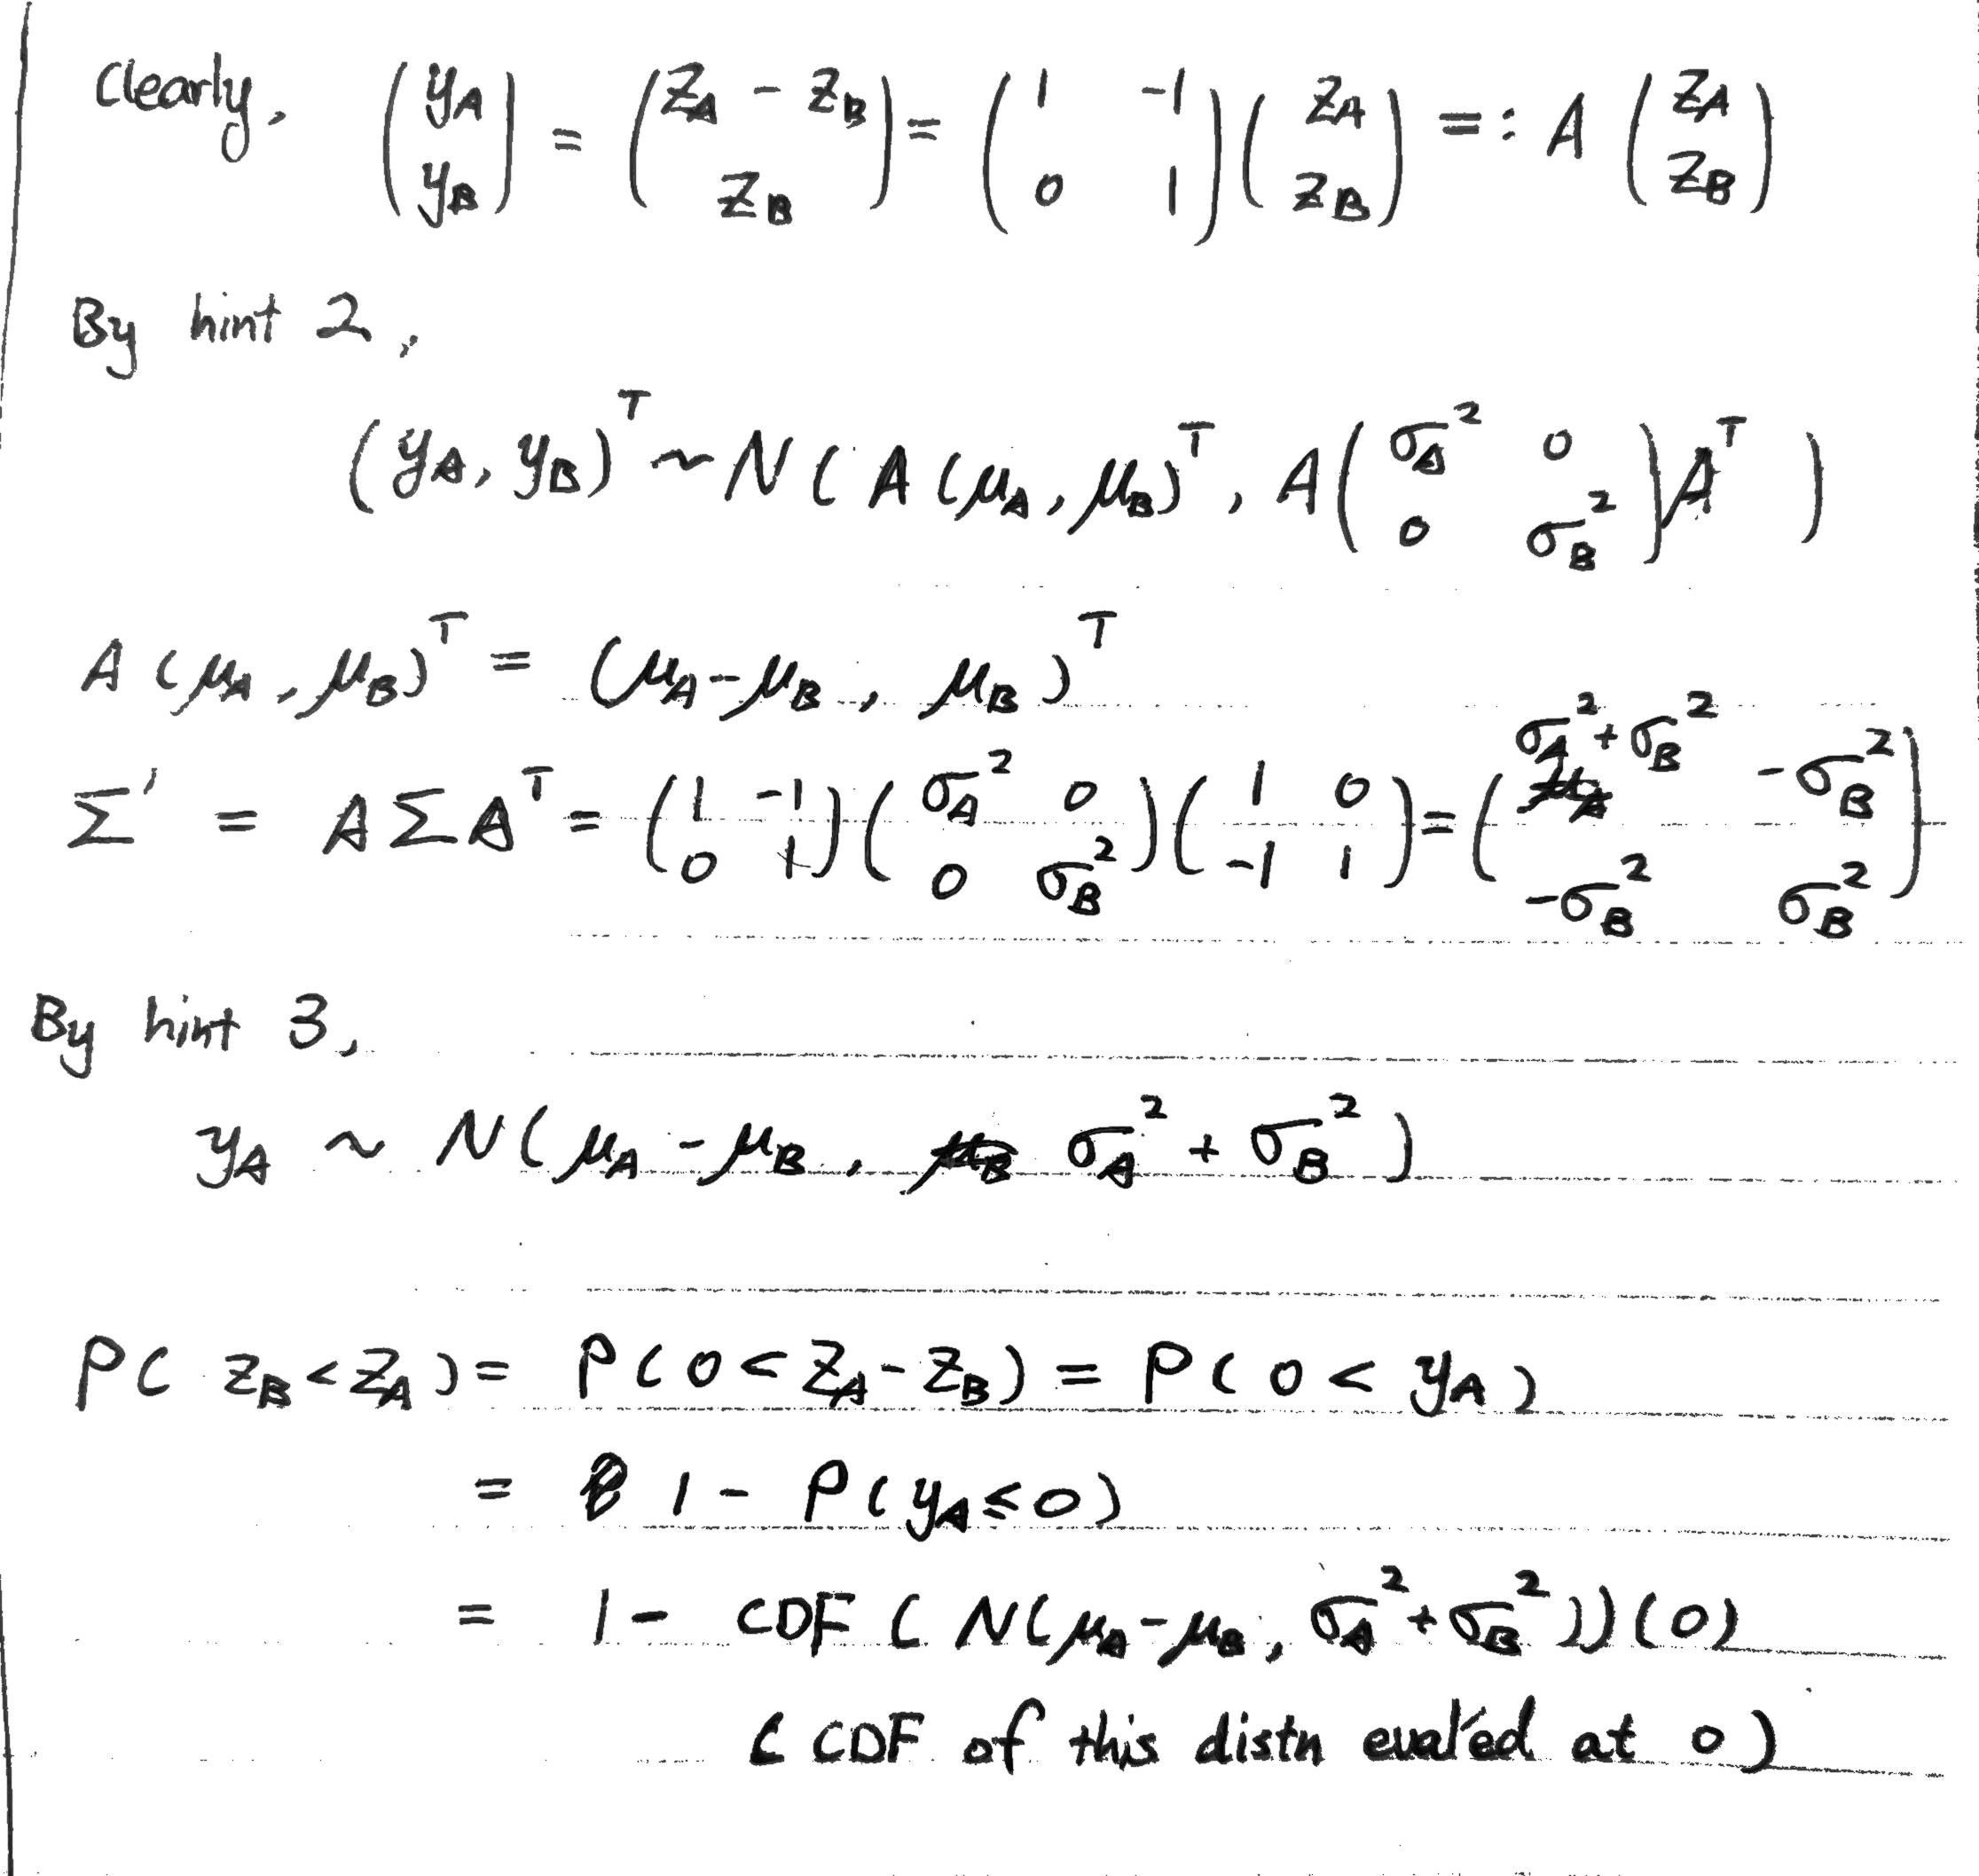 Clearly, (y_A y_B) = (z_A - z_B z_B) = (1 -1 0 1)(z_A z_B) =: A (z_A z_B)
By hint 2,
(y_A, y_B)^T ~ N(A(μ_A, μ_B)^T, A(σ_A^2 0 0 σ_B^2)A^T)
A(μ_A, μ_B)^T = (μ_A - μ_B, μ_B)^T
Σ' = AΣA^T = (1 -1 0 1)(σ_A^2 0 0 σ_B^2)(1 0 -1 1) = (σ_A^2 + σ_B^2 -σ_B^2 -σ_B^2 σ_B^2)
By hint 3,
y_A ~ N(μ_A - μ_B, σ_A^2 + σ_B^2)
P(z_B < z_A) = P(0 < z_A - z_B) = P(0 < y_A)
= 1 - P(y_A ≤ 0)
= 1 - CDF(N(μ_A - μ_B, σ_A^2 + σ_B^2))(0)
(CDF of this distn eval'ed at 0)